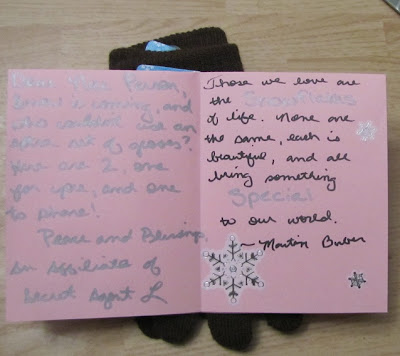 Dear Nice Person,
Winter is coming, and
who couldn't use an
extra set of gloves?
Here are 2, one
for you, and one
to share!
Peace and Blessings,
An Affiliate of
Secret Agent L
Those we love are
the Snowflakes
of life. None are
the same, each is
beautiful, and all
bring something
Special
to our world.
~ Martin Buber